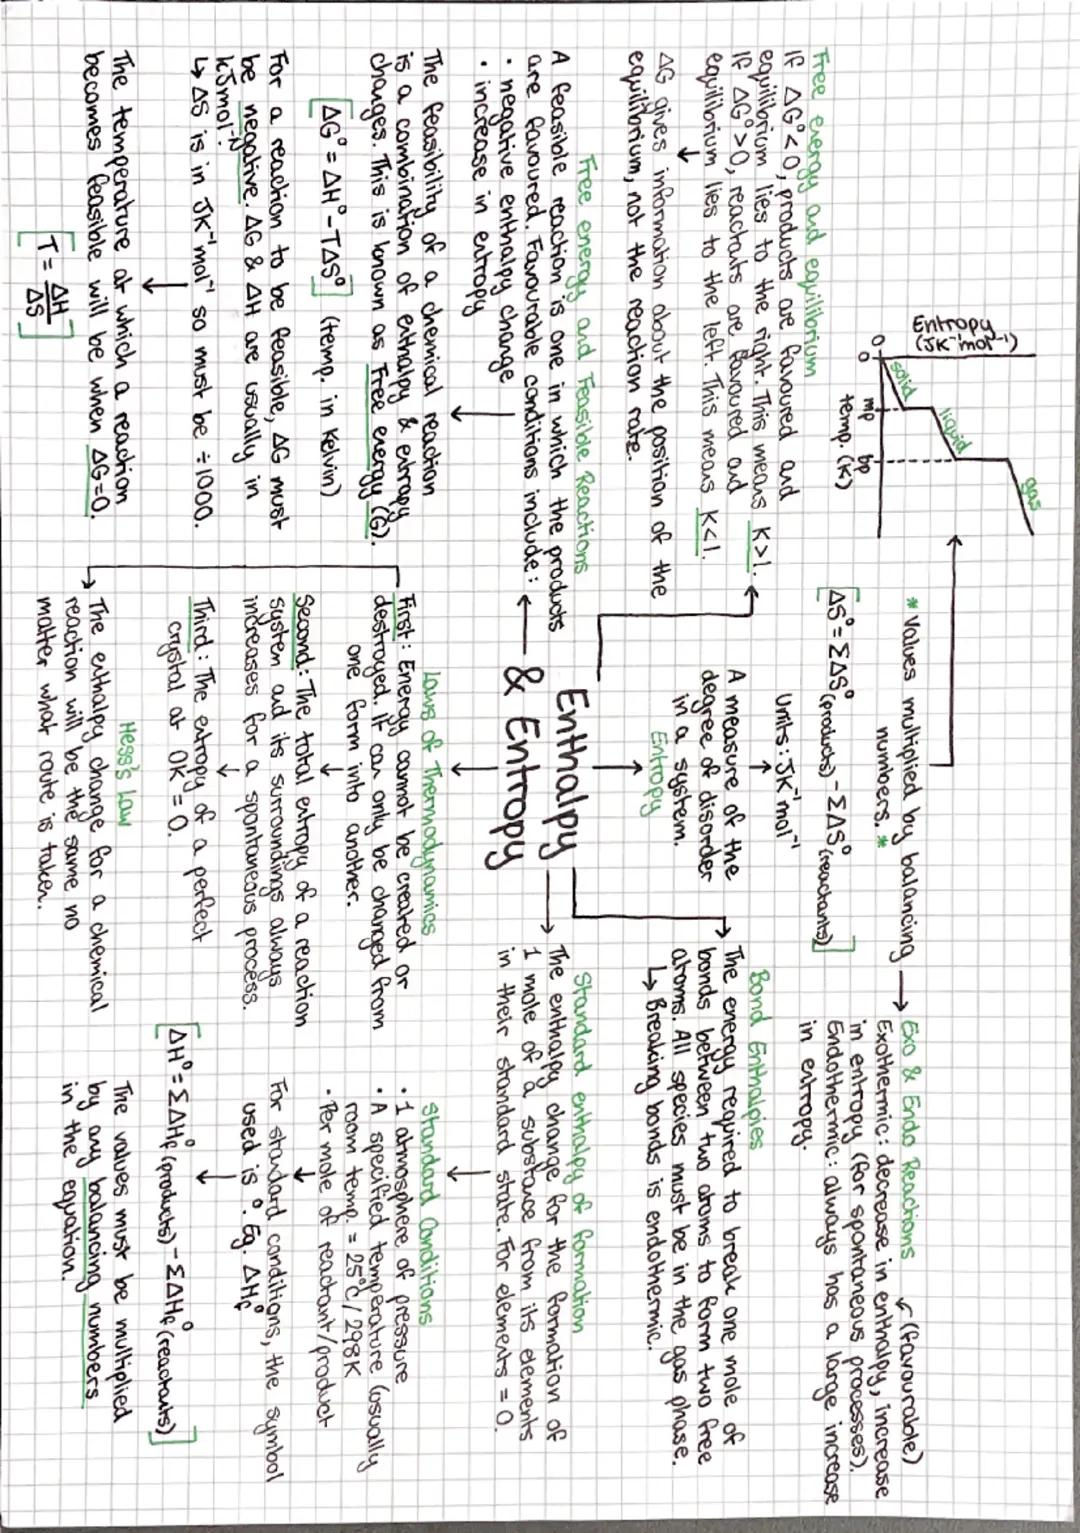 Entropy
(JK⁻¹mol⁻¹)
0
0
solid
liquid
gas
mp
bp
temp. (K)
Free energy and equilibrium
If ΔG°<0, products are favoured and
equilibrium lies to the right. This means K>1.
If ΔG°>0, reactants are favoured and
equilibrium lies to the left. This means K<1.
ΔG gives information about the position of the
equilibrium, not the reaction rate.
Free energy and Feasible Reactions
A feasible reaction is one in which the products
are favoured. Favourable conditions include:
· negative enthalpy change
· increase in entropy
The feasibility of a chemical reaction
is a combination of enthalpy & entropy
changes. This is known as Free energy (G).
[ΔG° = ΔH° - TΔS°] (temp. in Kelvin)
For a reaction to be feasible, ΔG must
be negative. ΔG & ΔH are usually in
kJmol⁻¹.
↳ ΔS is in JK⁻¹mol⁻¹ so must be ÷1000.
The temperature at which a reaction
becomes feasible will be when ΔG=0.
[T = ΔH/ΔS]
* Values multiplied by balancing
numbers. *
[ΔS° = ΣΔS°(products) - ΣΔS°(reactants)]
Units: JK⁻¹mol⁻¹
A measure of the
degree of disorder
in a system.
Entropy
Enthalpy
& Entropy
Laws of Thermodynamics
First: Energy cannot be created or
destroyed. It can only be changed from
one form into another.
Second: The total entropy of a reaction
system and its surroundings always
increases for a spontaneous process.
Third: The entropy of a perfect
crystal at 0K = 0.
Hess's Law
The enthalpy change for a chemical
reaction will be the same no
matter what route is taken.
Exo & Endo Reactions
(favourable)
Exothermic: decrease in enthalpy, increase
in entropy (for spontaneous processes).
Endothermic: always has a large increase
in entropy.
Bond Enthalpies
The energy required to break one mole of
bonds between two atoms to form two free
atoms. All species must be in the gas phase.
↳ Breaking bonds is endothermic.
Standard enthalpy of formation
The enthalpy change for the formation of
1 mole of a substance from its elements
in their standard state. For elements = 0.
Standard Conditions
· 1 atmosphere of pressure
· A specified temperature (usually
room temp. = 25°C/298K
· Per mole of reactant/product
For standard conditions, the symbol
used is °. Eg. ΔHf°
[ΔH° = ΣΔHf°(products) - ΣΔHf°(reactants)]
The values must be multiplied
by any balancing numbers
in the equation.